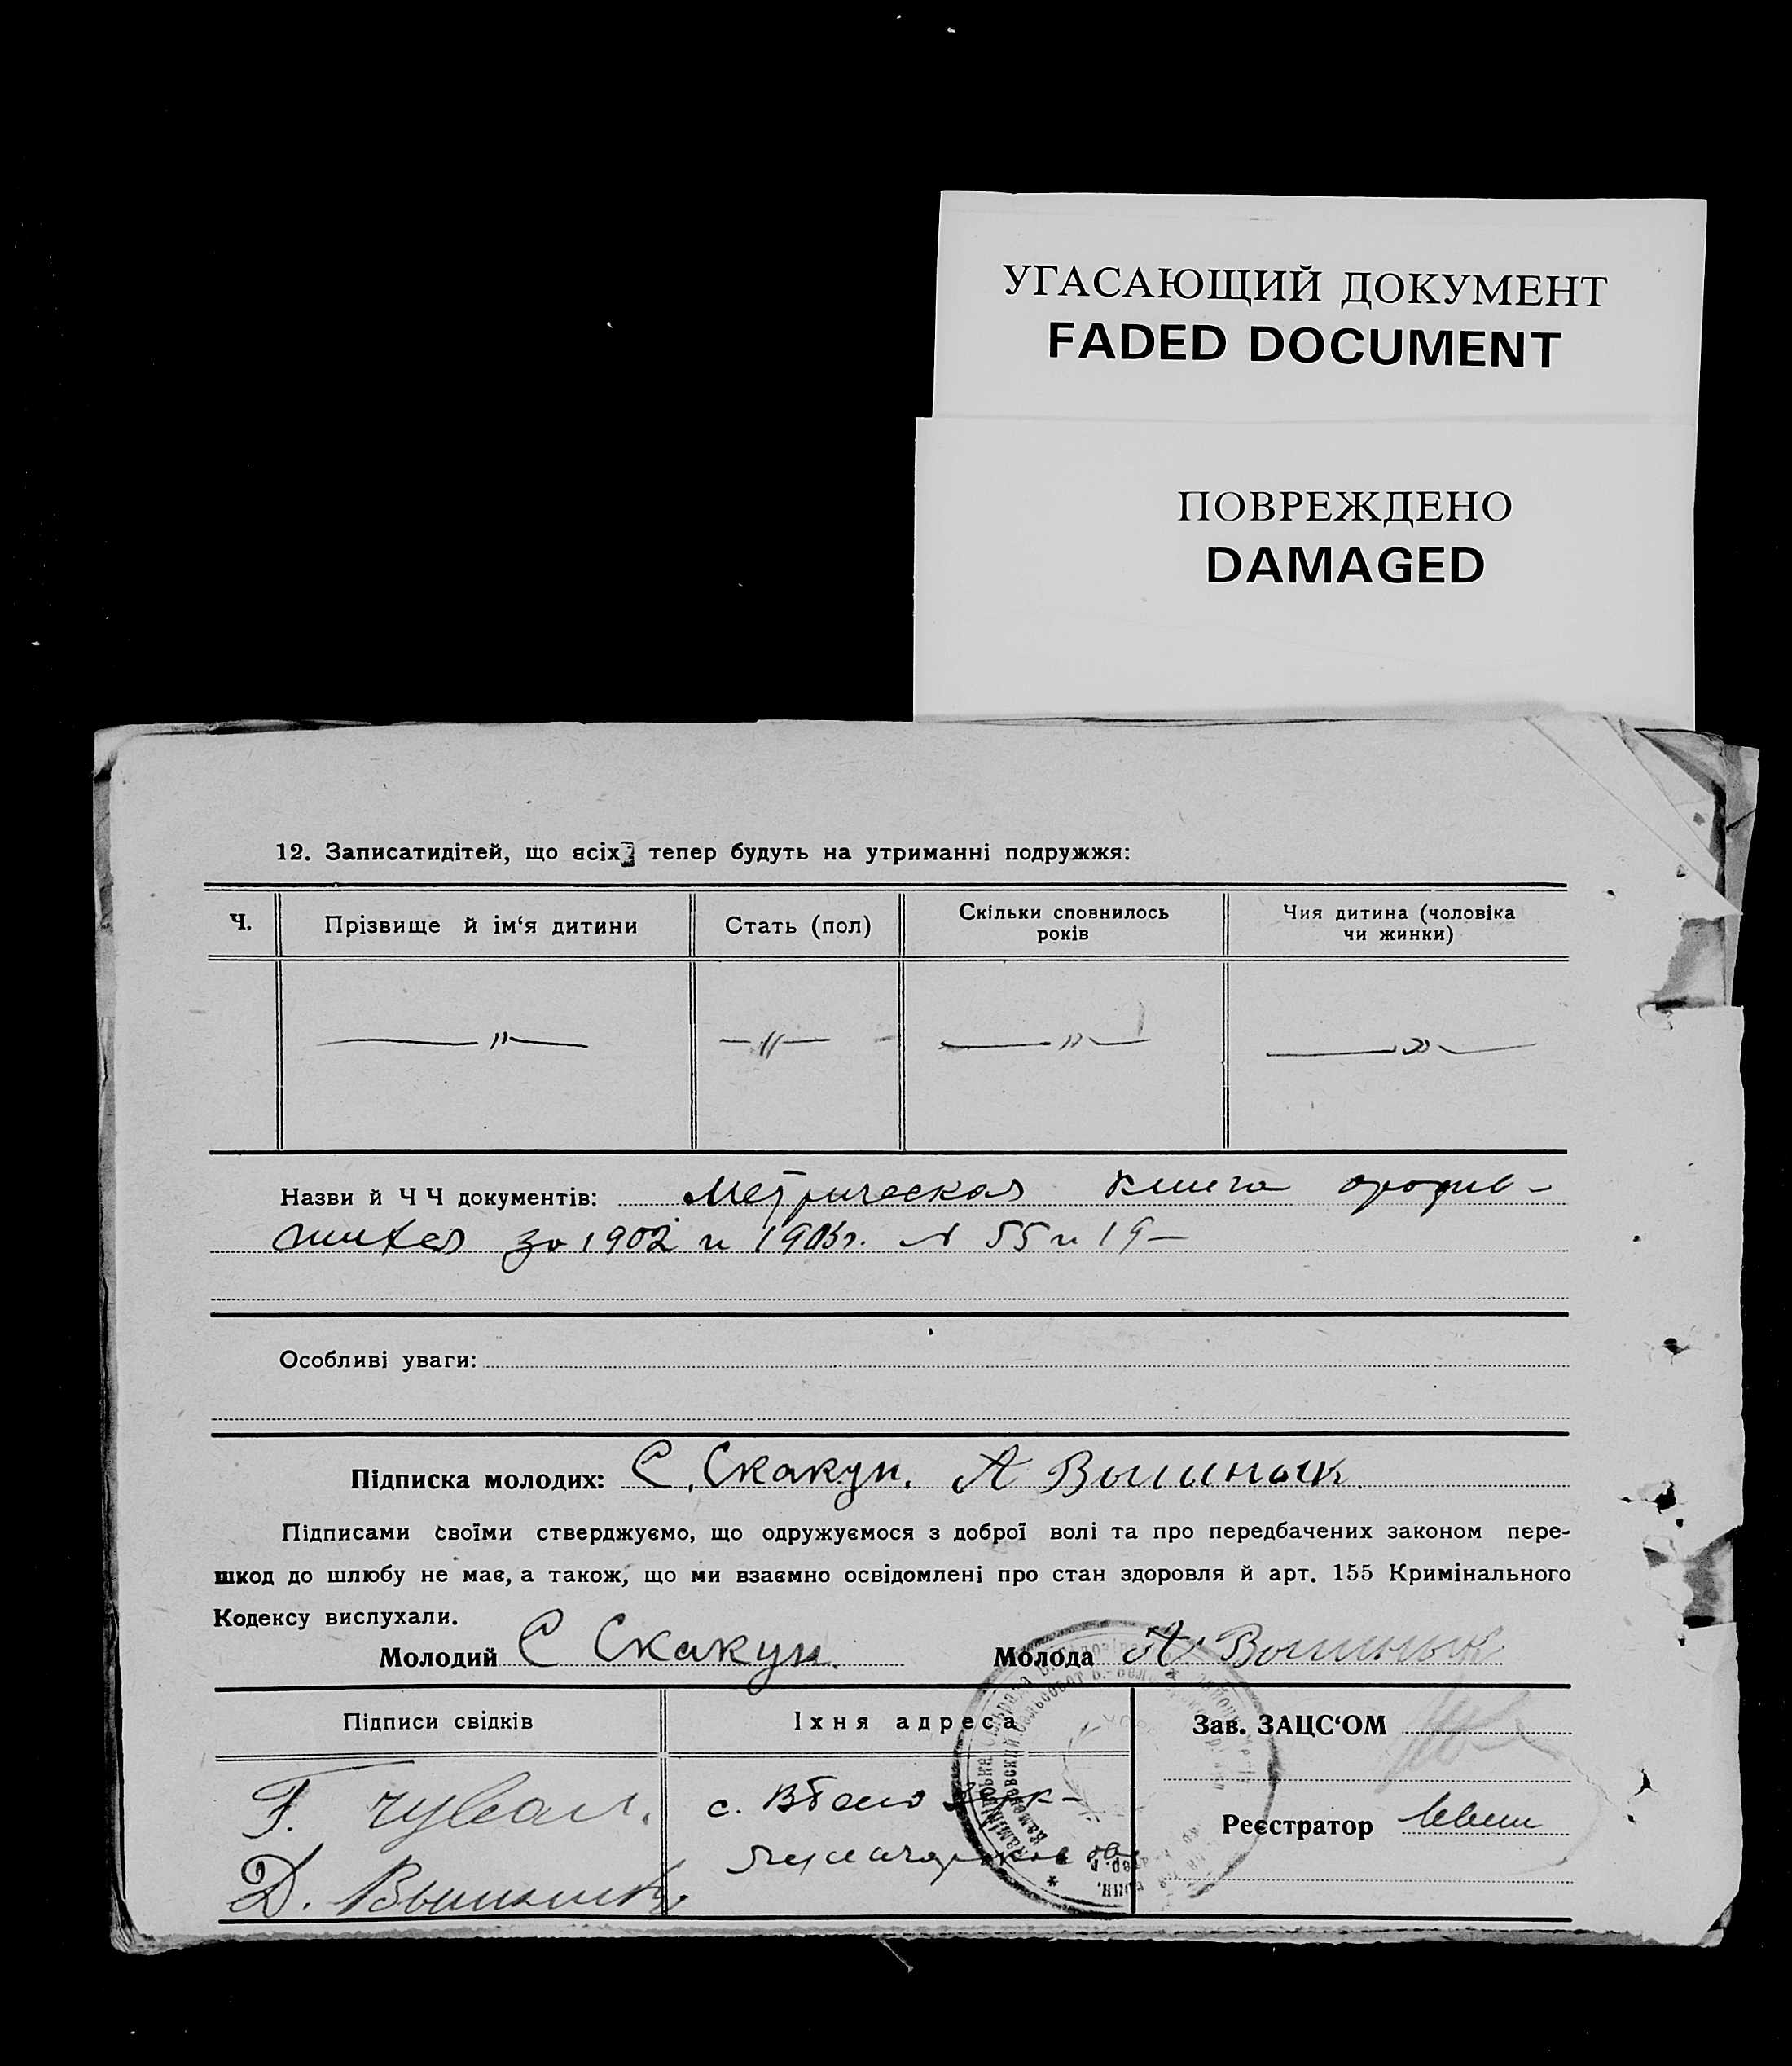 УГАСАЮЩИЙ ДОКУМЕНТ
FADED DOCUMENT
ПОВРЕЖДЕНО
DAMAGED
12. Записатидітей, що всіх тепер будуть на утриманні подружжя:
Ч.
Прізвище й ім‘я дитини
Стать (пол)
Скільки сповнилось
років
Чия дитина (чоловіка
чи жинки)
— „ —
— „ —
— „ —
— „ —
Назви й Ч Ч документів: Метрическая книга о родив-
шихся за 1902 и 1903г. № 55 и 19 —
Особливі уваги:
Підписка молодих: С. Скакун. А Вышнык
Підписами своїми стверджуємо, що одружуємося з доброї волі та про передбачених законом пере-
шкод до шлюбу не має, а також, що ми взаємно освідомлені про стан здоровля й арт. 155 Кримінального
Кодексу вислухали.
Молодий С Скакун.
Молода А Вышнык
Підписи свідків
Їхня адреса
Зав. ЗАЦС‘ОМ
Г.
Д.
с.
Реєстратор